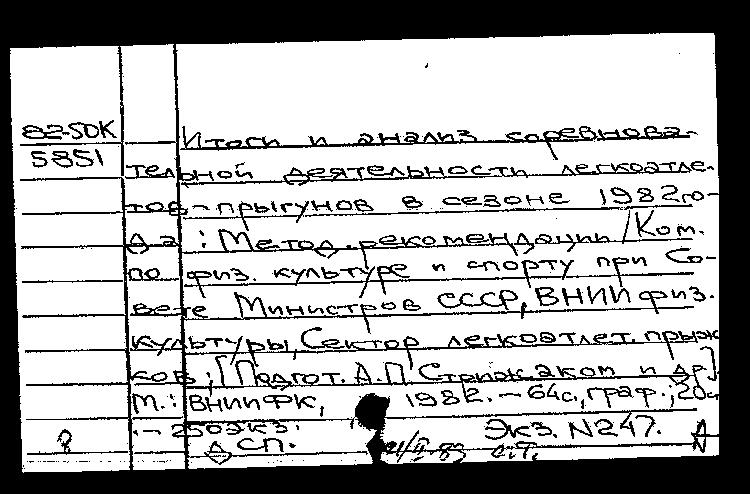 82-5DK
5851
Итоги и анализ соревнова-
тельной деятельности легкоатле-
тов-прыгунов в сезоне 1982 го-
да: Метод. рекомендации / Ком.
по физ. культуре и спорту при Со-
вете Министров СССР, ВНИИ физ.
культуры, Сектор легкоатлет. прыж
ков; [Подгот. А.П. Стрижаком и др.]
М.: ВНИИФК, 1982. - 64с., граф.; 20с
.- 250экз.
Экз. N247.
ДСП.